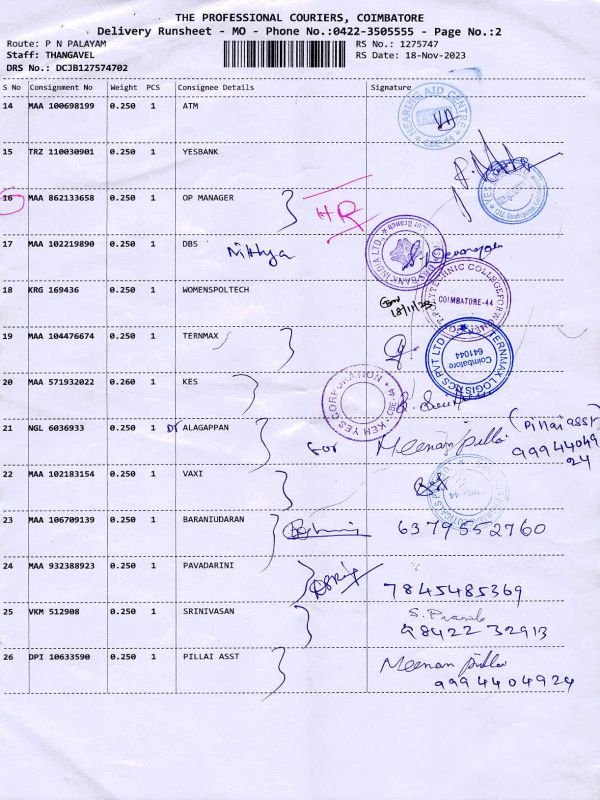 THE PROFESSIONAL COURIERS, COIMBATORE
Delivery Runsheet - MO - Phone No.:0422-3505555 - Page No.:2
Route: P N PALAYAM
RS No.: 1275747
Staff: THANGAVEL
RS Date: 18-Nov-2023
DRS No.: DCJB127574702
S No Consignment No Weight PCS Consignee Details Signature
14 MAA 100698199 0.250 1 ATM
HEARING AID CENTRE
15 TRZ 110030901 0.250 1 YESBANK
16 MAA 862133658 0.250 1 OP MANAGER HR
17 MAA 102219890 0.250 1 DBS Nithya
18 KRG 169436 0.250 1 WOMENSPOLTECH
18/11/23
COIMBATORE-44
19 MAA 104476674 0.250 1 TERNMAX
TERNMAX LOGISTICS PVT LTD
Coimbatore
641044
20 MAA 571932022 0.260 1 KES
KEH YES CORPORATION
21 NGL 6036933 0.250 1 Dr ALAGAPPAN for Meenan pillai (Pillai asst)
9994404924
22 MAA 102183154 0.250 1 VAXI
23 MAA 106709139 0.250 1 BARANIUDARAN 6379552760
24 MAA 932388923 0.250 1 PAVADARINI 7845485369
25 VKM 512908 0.250 1 SRINIVASAN
98422 32913
26 DPI 10633590 0.250 1 PILLAI ASST Meenan pillai
9994404924